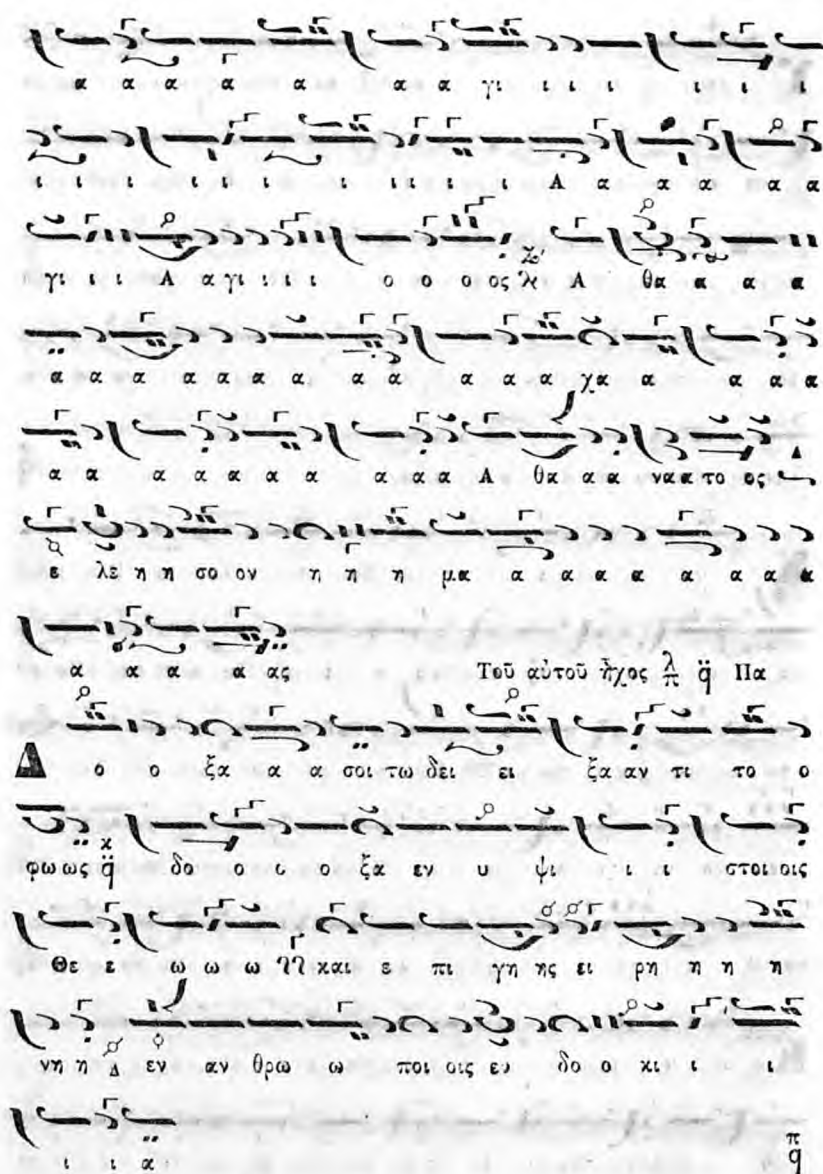 α α α α α α α γι ι ι ι ι ι ι ι
ι ι ι ι ι ι ι ι ι ι ι ι ι Α α α α α α
γι ι ι ι Α α γι ι ι ι ο ο ο ος Α θα α α α
α α α α α α α α α α α α χα α α α α
α α α α α α α α α α Α θα α α να α το ος
ε λε η η σο ον η η η μα α α α α α α α
α α α α ας Τοῦ αὐτοῦ ἦχος λ π q Πα
Δ ο ο ξα α α σοι τω δει ει ξα αν τι το ο
φω ως q δο ο ο ο ξα εν υ ψι ι ι στοι οις
Θε ε ω ω ω και ε πι γη ης ει ρη η η η
νη η Δ εν αν θρω ω ποι οις ευ δο ο κι ι ι ι
ι ι α π q